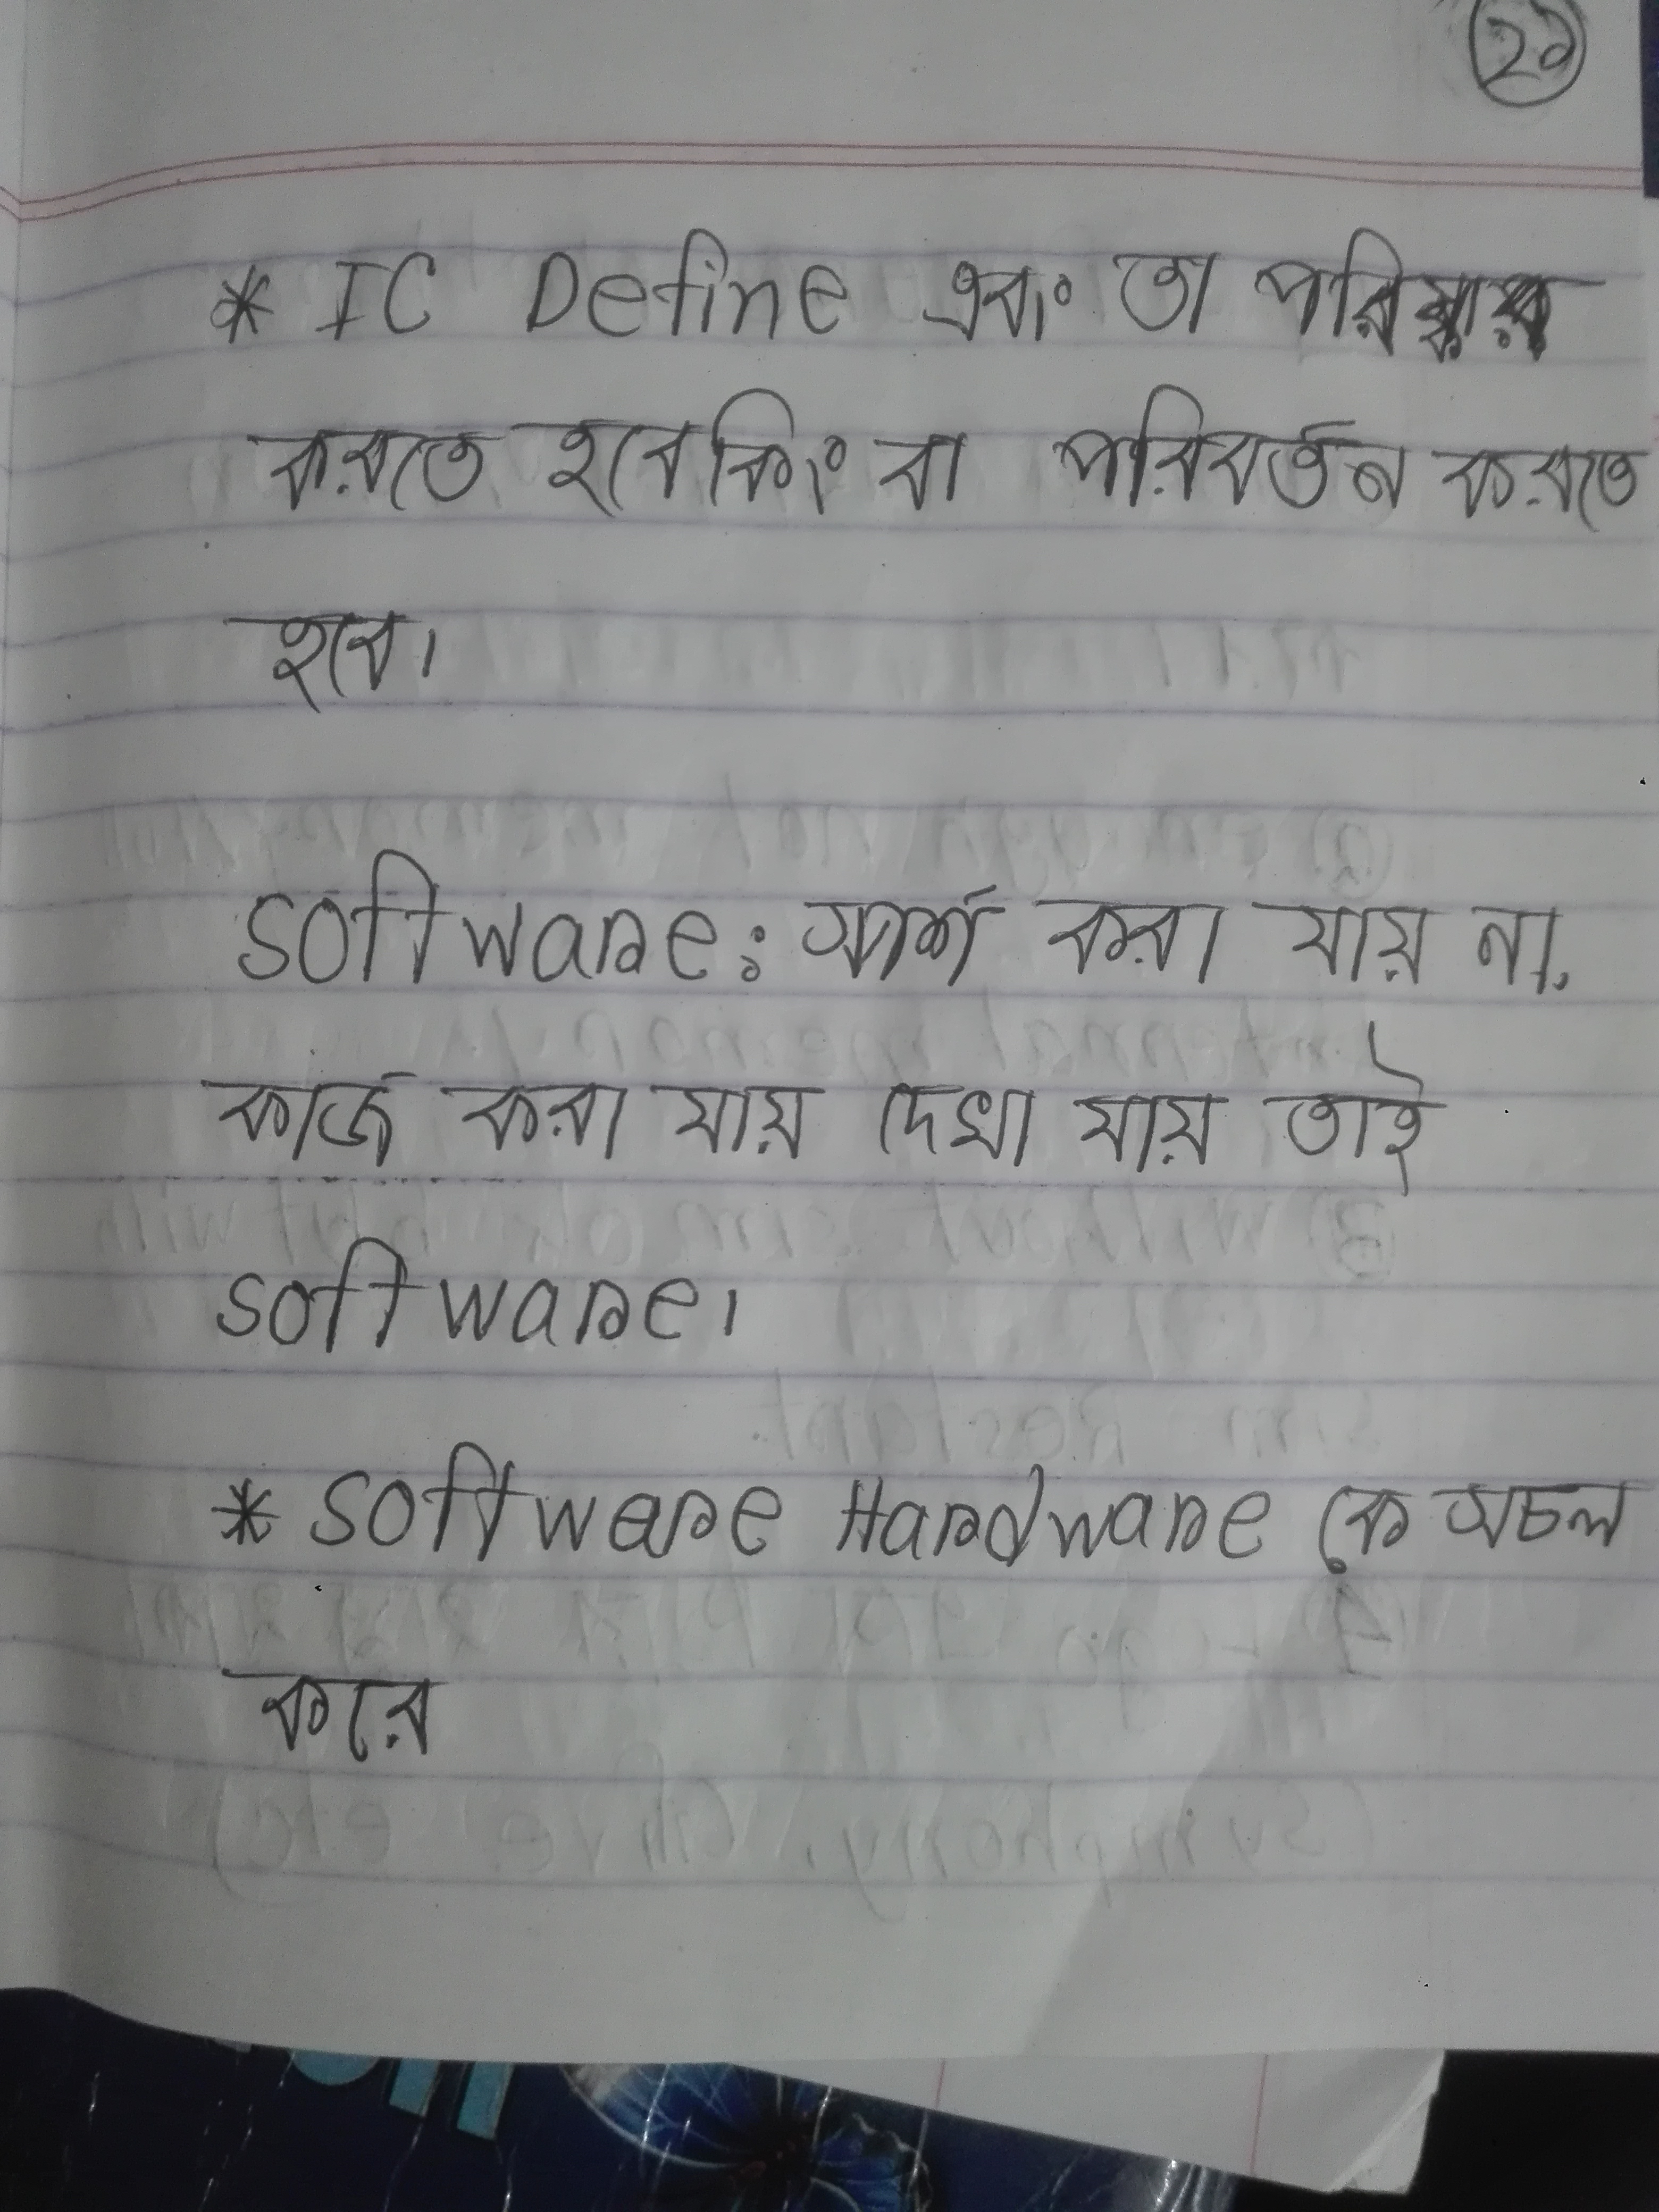 ২১
* IC Define এবং তা পরিষ্কার
করতে হবে কিংবা পরিবর্তন করতে
হবে।
Software: স্পর্শ করা যায় না,
কাজ করা যায় দেখা যায় তাই
software।
* Software Hardware কে সচল
করে